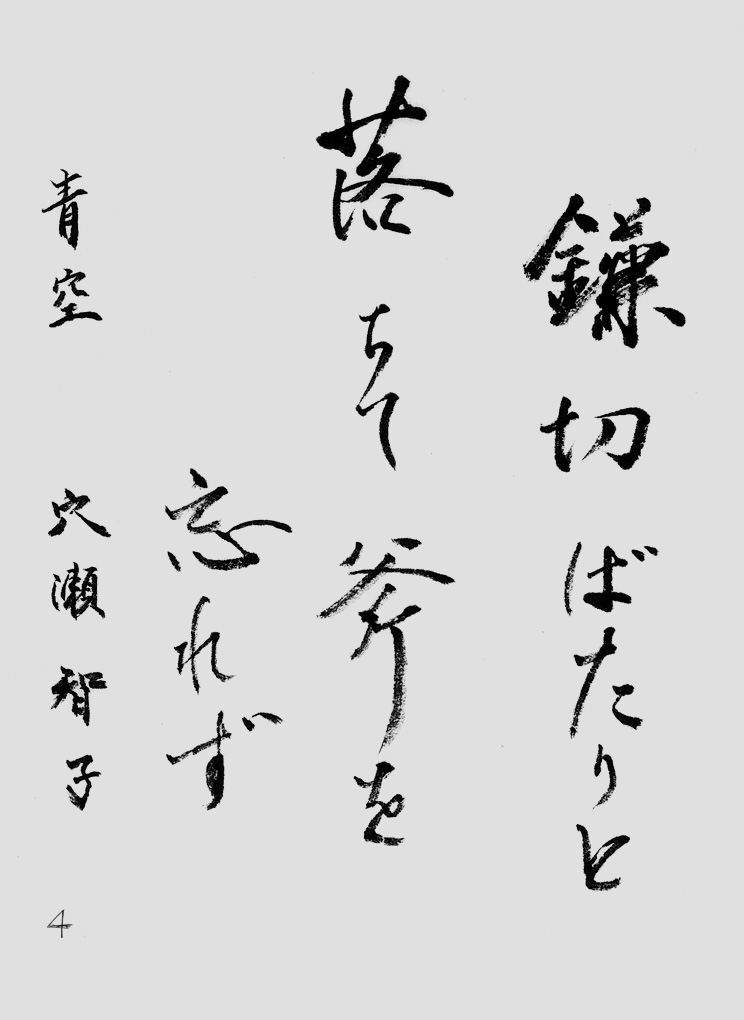 鎌切ばたりと
落ちて斧を
忘れず
青空 穴瀬智子
4